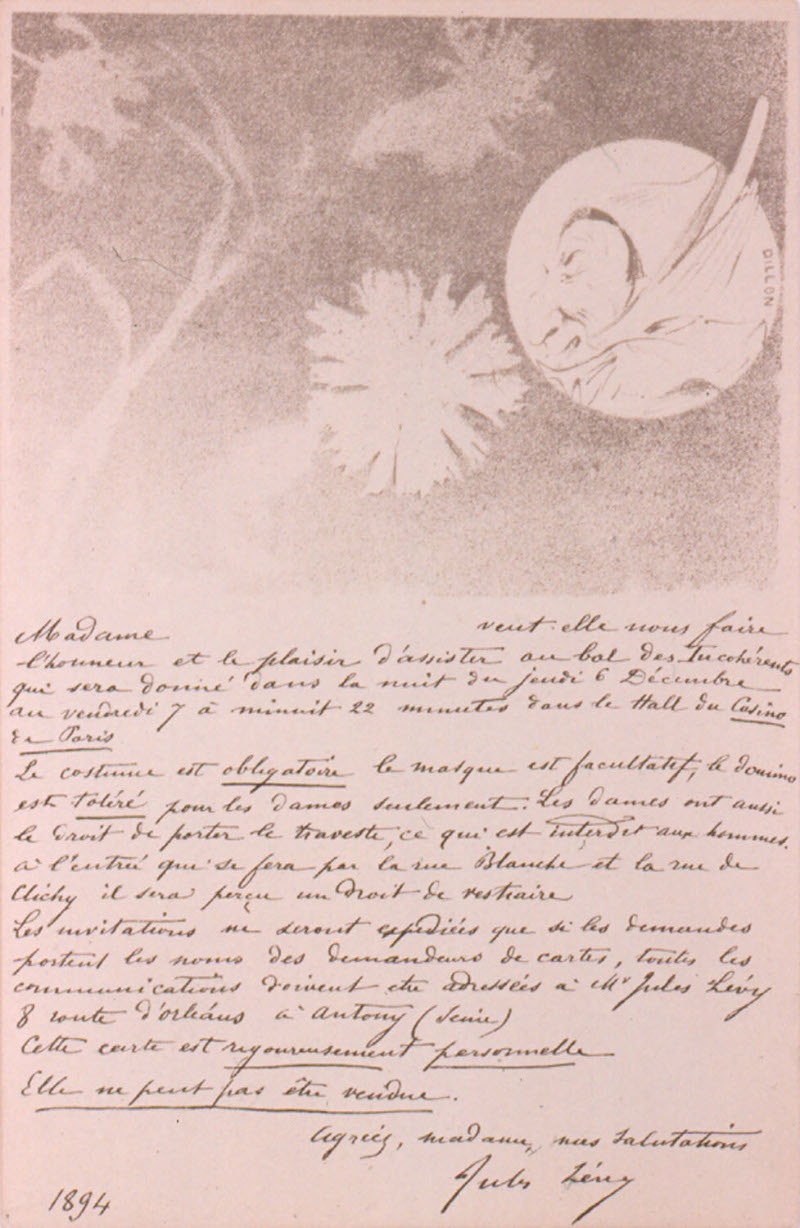 DILLON
Madame veut-elle nous faire
l'honneur et le plaisir d'assister au bal des Incohérents
qui sera donné dans la nuit du jeudi 6 Décembre
au vendredi 7 à minuit 22 minutes dans le Hall du Casino
de Paris
Le costume est obligatoire le masque est facultatif, le domino
est toléré pour les dames seulement. Les dames ont aussi
le droit de porter le travesti, ce qui est interdit aux hommes.
à l'entrée qui se fera par la rue Blanche et la rue de
Clichy il sera perçu un droit de vestiaire
Les invitations ne seront expédiées que si les demandes
portent les noms des demandeurs de cartes, toutes les
communications doivent etre adressées à Mr Jules Lévy
8 route d'orléans à Antony (Seine)
Cette carte est rigoureusement personnelle
Elle ne peut pas être vendue.
agréez, madame, mes salutations
Jules Lévy
1894